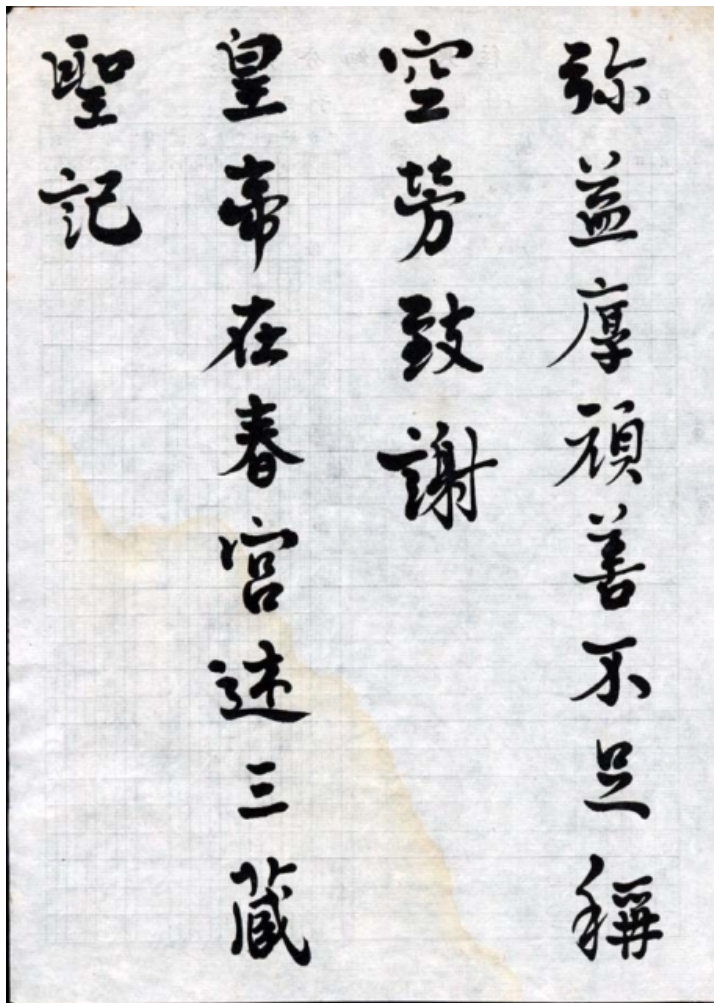 弥益厚顔善不足稱
空勞致謝
皇帝在春宮述三藏
聖記